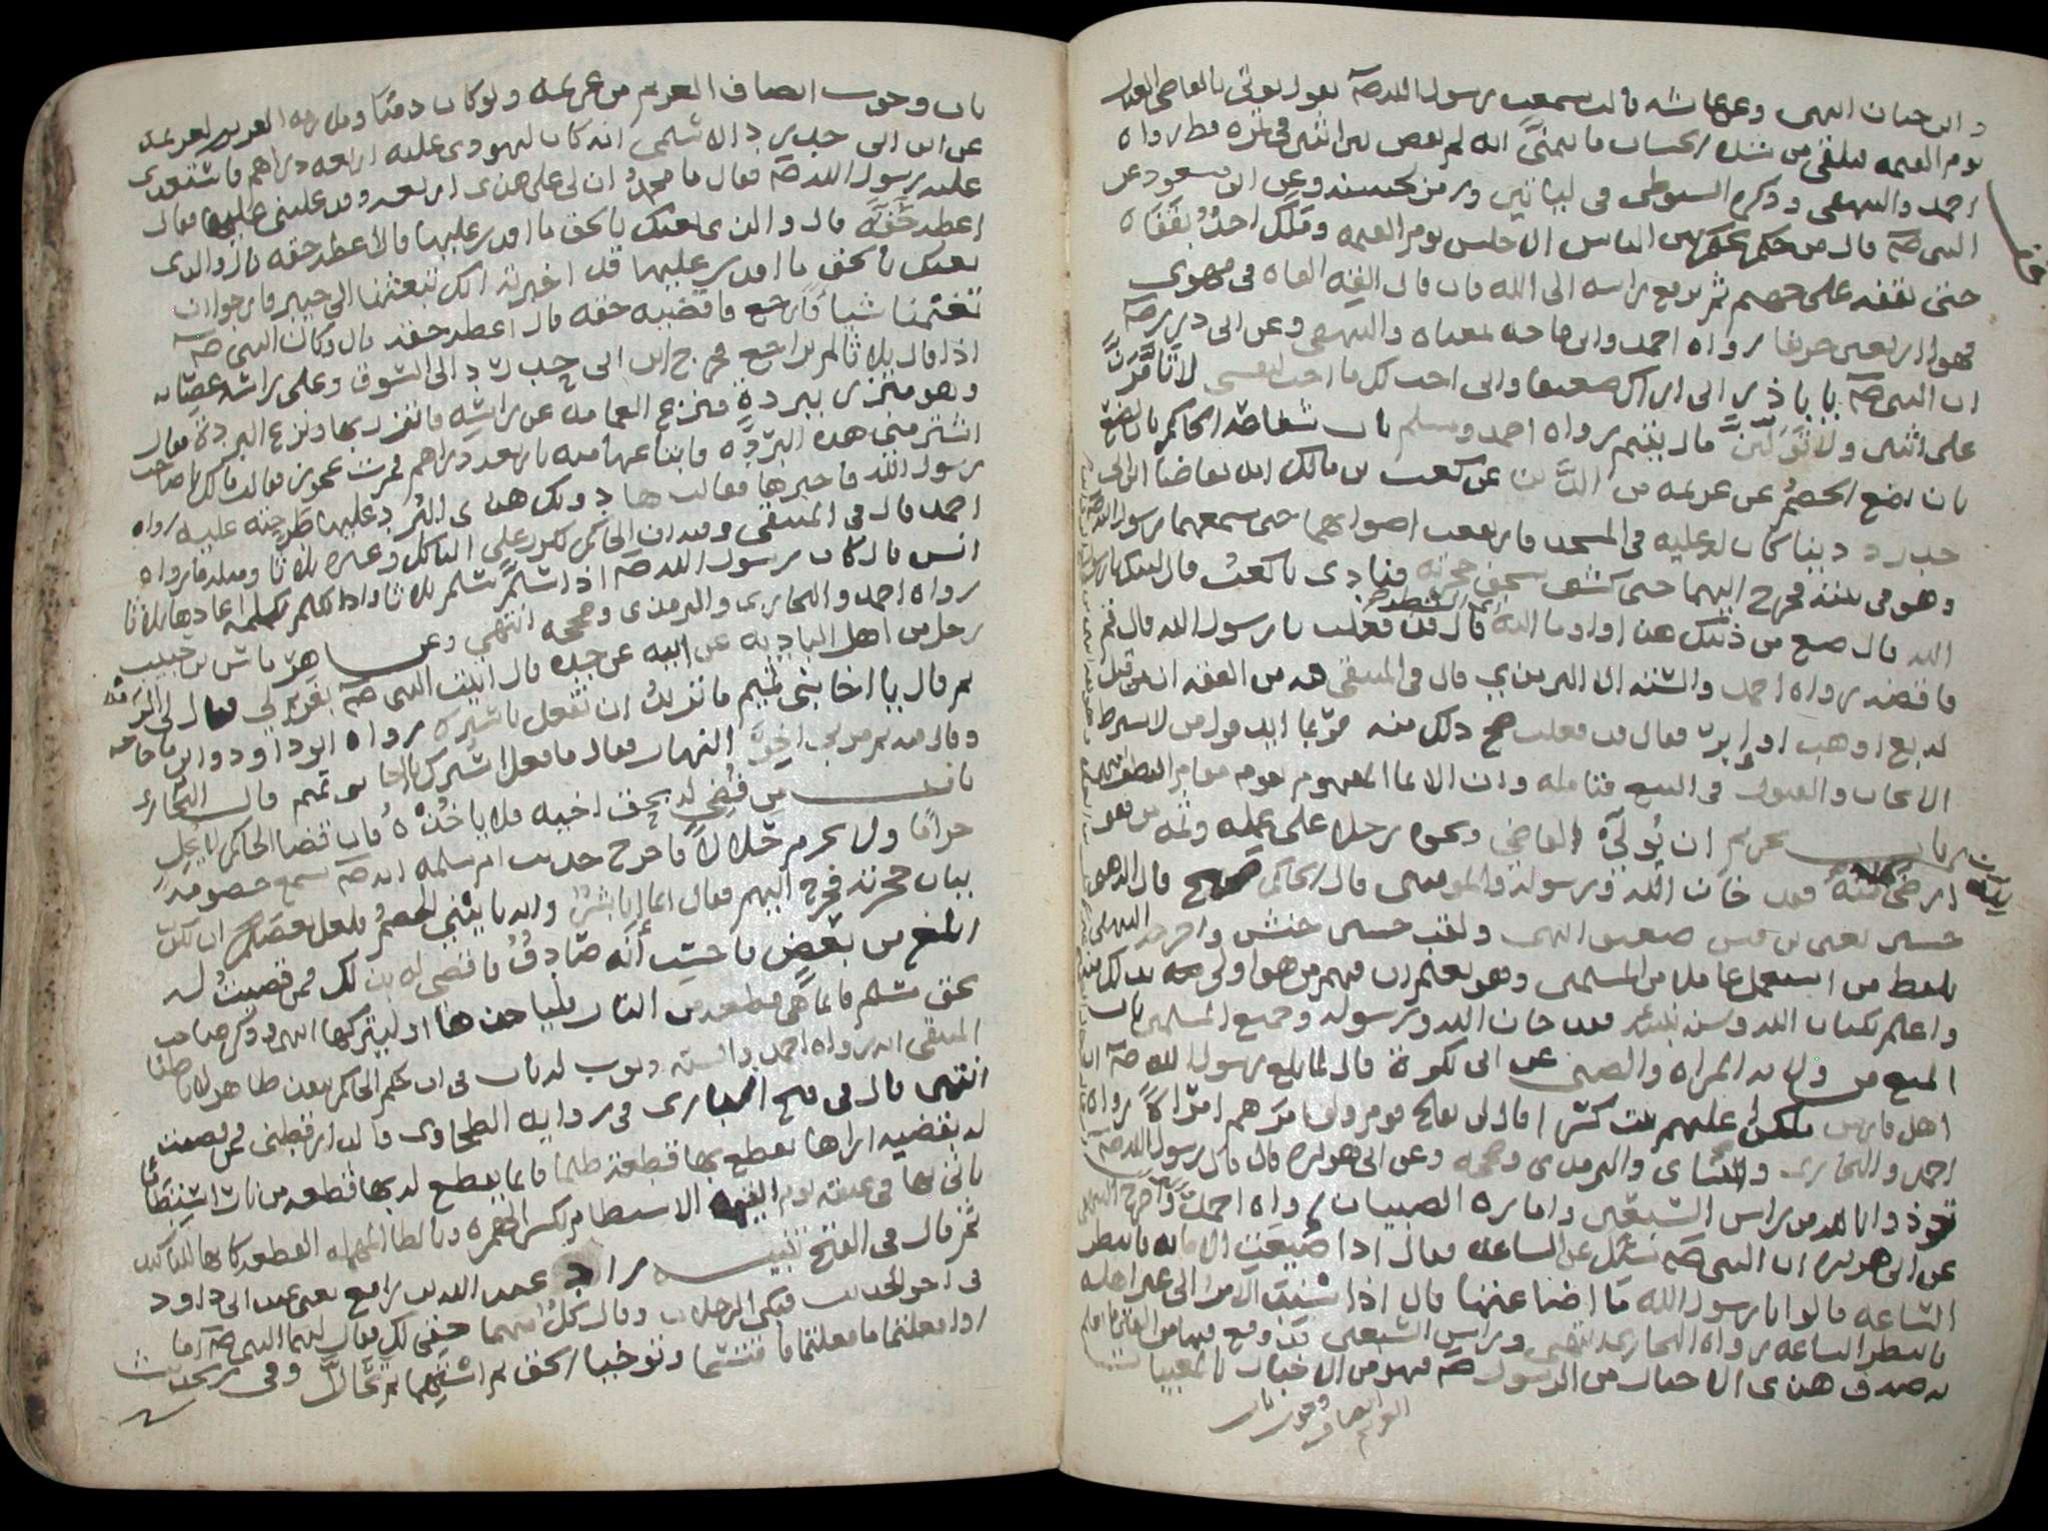 وابن حبان انتهى وعن عائشه قالت سمعت رسول الله صلم يقول يوتى بالقاضي العدل
يوم القيمه فيلقى من شده الحساب ما يتمنى انه لم يقض بين اثنين في تمرة قط رواه
احمد والبيهقي وذكره السيوطي في ورمز لحسنه وعن ابن مسعود عن
النبي صلم قال من حكم يحكم بين الناس الا حبس يوم القيمه وملك اخذ بقفاه
حتى يقفه على جهنم ثم يرفع راسه الى الله فان قال القه القاه في مهوى
فهوا اربعين خريفا رواه احمد وابن ماجه بمعناه والبيهقي وعن ابي ذر
ان النبي صلم قال يا با ذر اني اراك ضعيفا واني احب لك ما احب لنفسي لا تامرن
على اثنين ولا تولين مال يتيم رواه احمد ومسلم باب شفاعة الحاكم
بان يضع الخصم عن غريمه من الدين عن كعب بن مالك انه تقاضا ابن ابي
حدرد دينا كان له عليه في المسجد فارتفعت اصواتهما حتى سمعهما رسول الله
وهو في بيته فخرج اليهما حتى كشف سجف حجرته فنادى يا كعب قال لبيك يا رسول
الله قال ضع من دينك هذا واوما اليه اي الشطر قال قد فعلت يا رسول الله قال قم
فاقضه رواه احمد والستة الا الترمذي قال في المنتقى فيه من الفقه ان من قيل
له بع او هب او ابر فقال قد فعلت صح ذلك منه
الايجاب والقبول في البيع فتامله وان الايما المفهوم يقوم مقام النطق انتهى
باب تحريم ان يولى القاضي ونحوه رجلا على عمله وثمه من هو
ارضى لله منه فقد خان الله ورسوله والمومنين قال الحاكم صحيح قال الذهبي
حسين يعني بن قيس ضعيف انتهى ولقب حسين حنش واخرجه البيهقي
بلفظ من استعمل عاملا من المسلمين وهو يعلم ان فيهم من هو اولى بذلك منه
واعلم بكتاب الله وسنة نبيه فقد خان الله ورسوله وجميع المسلمين باب
المنع من ولايه المراه والصبي عن ابي بكرة قال لما بلغ رسول الله صلم ان
اهل فارس ملكوا عليهم بنت كسرا قال لن يفلح قوم ولوا امرهم امراة رواه
احمد والبخاري والنسائي والترمذي وصححه وعن ابي هريره قال قال رسول الله صلم
تعوذوا بالله من راس السبعين وامارة الصبيان رواه احمد واخرج البخاري
عن ابي هريره ان النبي صلم سئل عن الساعه فقال اذا ضيعت الامانه فانتظر
الساعه قالوا يا رسول الله ما اضاعتها قال اذا اسند الامر الى غير اهله
فانتظر الساعه رواه البخاري انتهى وراس السبعين قد وقع فيها من الفتن ما يعلم
به صدق هذي الاخبار من الرسول صلم فهو من الاخبار بالمغيبات
باب وجوب انصاف الغريم
باب وجوب انصاف الغريم من غريمه ولو كان ذميا وملازمه الغريم لغريمه
عن ابن ابي حدرد الاسلمي انه كان ليهودي عليه اربعه دراهم فاستعدى
عليه رسول الله صلم فقال يا محمد ان لي على هذى اربعه وقد غلبني عليها فقال
اعطه حقه قال والذي بعثك بالحق ما اقدر عليها قال اعطه حقه قال والذي
بعثك بالحق ما اقدر عليها قد اخبرته انك تبعثنا الى خيبر فارجوا ان
تغنمنا شيا فارجع فاقضيه حقه قال اعطه حقه قال وكان النبي صلم
اذا قال ثلاثا لم يراجع فخرج ابن ابي حدرد الى السوق وعلى راسه عصابه
وهو متزر ببردة فنزع العمامه عن راسه فاتزر بها ونزع البردة فقال
اشتر مني هذه البردة فابتاعها منه باربعه دراهم فمرت عجوز فقالت مالك يا صاحب
رسول الله فاخبرها فقالت ها دونك هذى البرد عليها طرحته عليه رواه
احمد قال في المنتقى وفيه ان الحاكم يكرر على الناكل وغيره ثلاثا ومثله ما رواه
انس قال كان رسول الله صلم اذا سلم سلم ثلاثا واذا تكلم بكلمه اعادها ثلاثا
رواه احمد والبخاري والترمذي وصححه انتهى وعن هرماس بن حبيب
رجل من اهل الباديه عن ابيه عن جده قال اتيت النبي صلم بغريم لي فقال لي الزمه
ثم قال يا اخا بني تميم ما تريد ان تفعل باسيرك رواه ابو داود وابن ماجه
وقال فيه ثم مر بي اخر النهار فقال ما فعل اسيرك يا اخا بني تميم قال البخاري
باب من قضي له بحق اخيه فلا ياخذه فان قضا الحاكم لا يحل
حراما ولا يحرم حلالا فاخرج حديث ام سلمه انه صلم سمع خصومه
بباب حجرته فخرج اليهم فقال انما انا بشر وانه ياتيني الخصم فلعل بعضكم ان يكون
ابلغ من بعض فاحسب انه صادق فاقضي له بذلك فمن قضيت له
بحق مسلم فانما هي قطعه من النار فلياخذها او ليتركها انتهى وذكر صاحب
المنتقى انه رواه احمد والستة وبوب له باب في ان حكم الحاكم ينفذ ظاهرا لا باطنا
انتهى قال في فتح الباري في رواية الطحاوي والدارقطني فمن قضيت
له بقضيه اراها يقطع بها قطعة ظلما فانما يقطع له بها قطعه من نار اسطاما
ياتي بها في عنقه يوم القيمه الاسطام بكسر الهمزه وبالطا المهمله القطعه كانها للتاكيد
ثم قال في الفتح تنبيه زاد عبد الله بن رافع يعني عند ابي داود
في اخر الحديث فبكى الرجلان وقال كل منهما حقي لك فقال لهما النبي صلم اما
اذا فعلتما ما فعلتما فاقتسما وتوخيا الحق ثم استهما ثم تحالا وفي الحديث